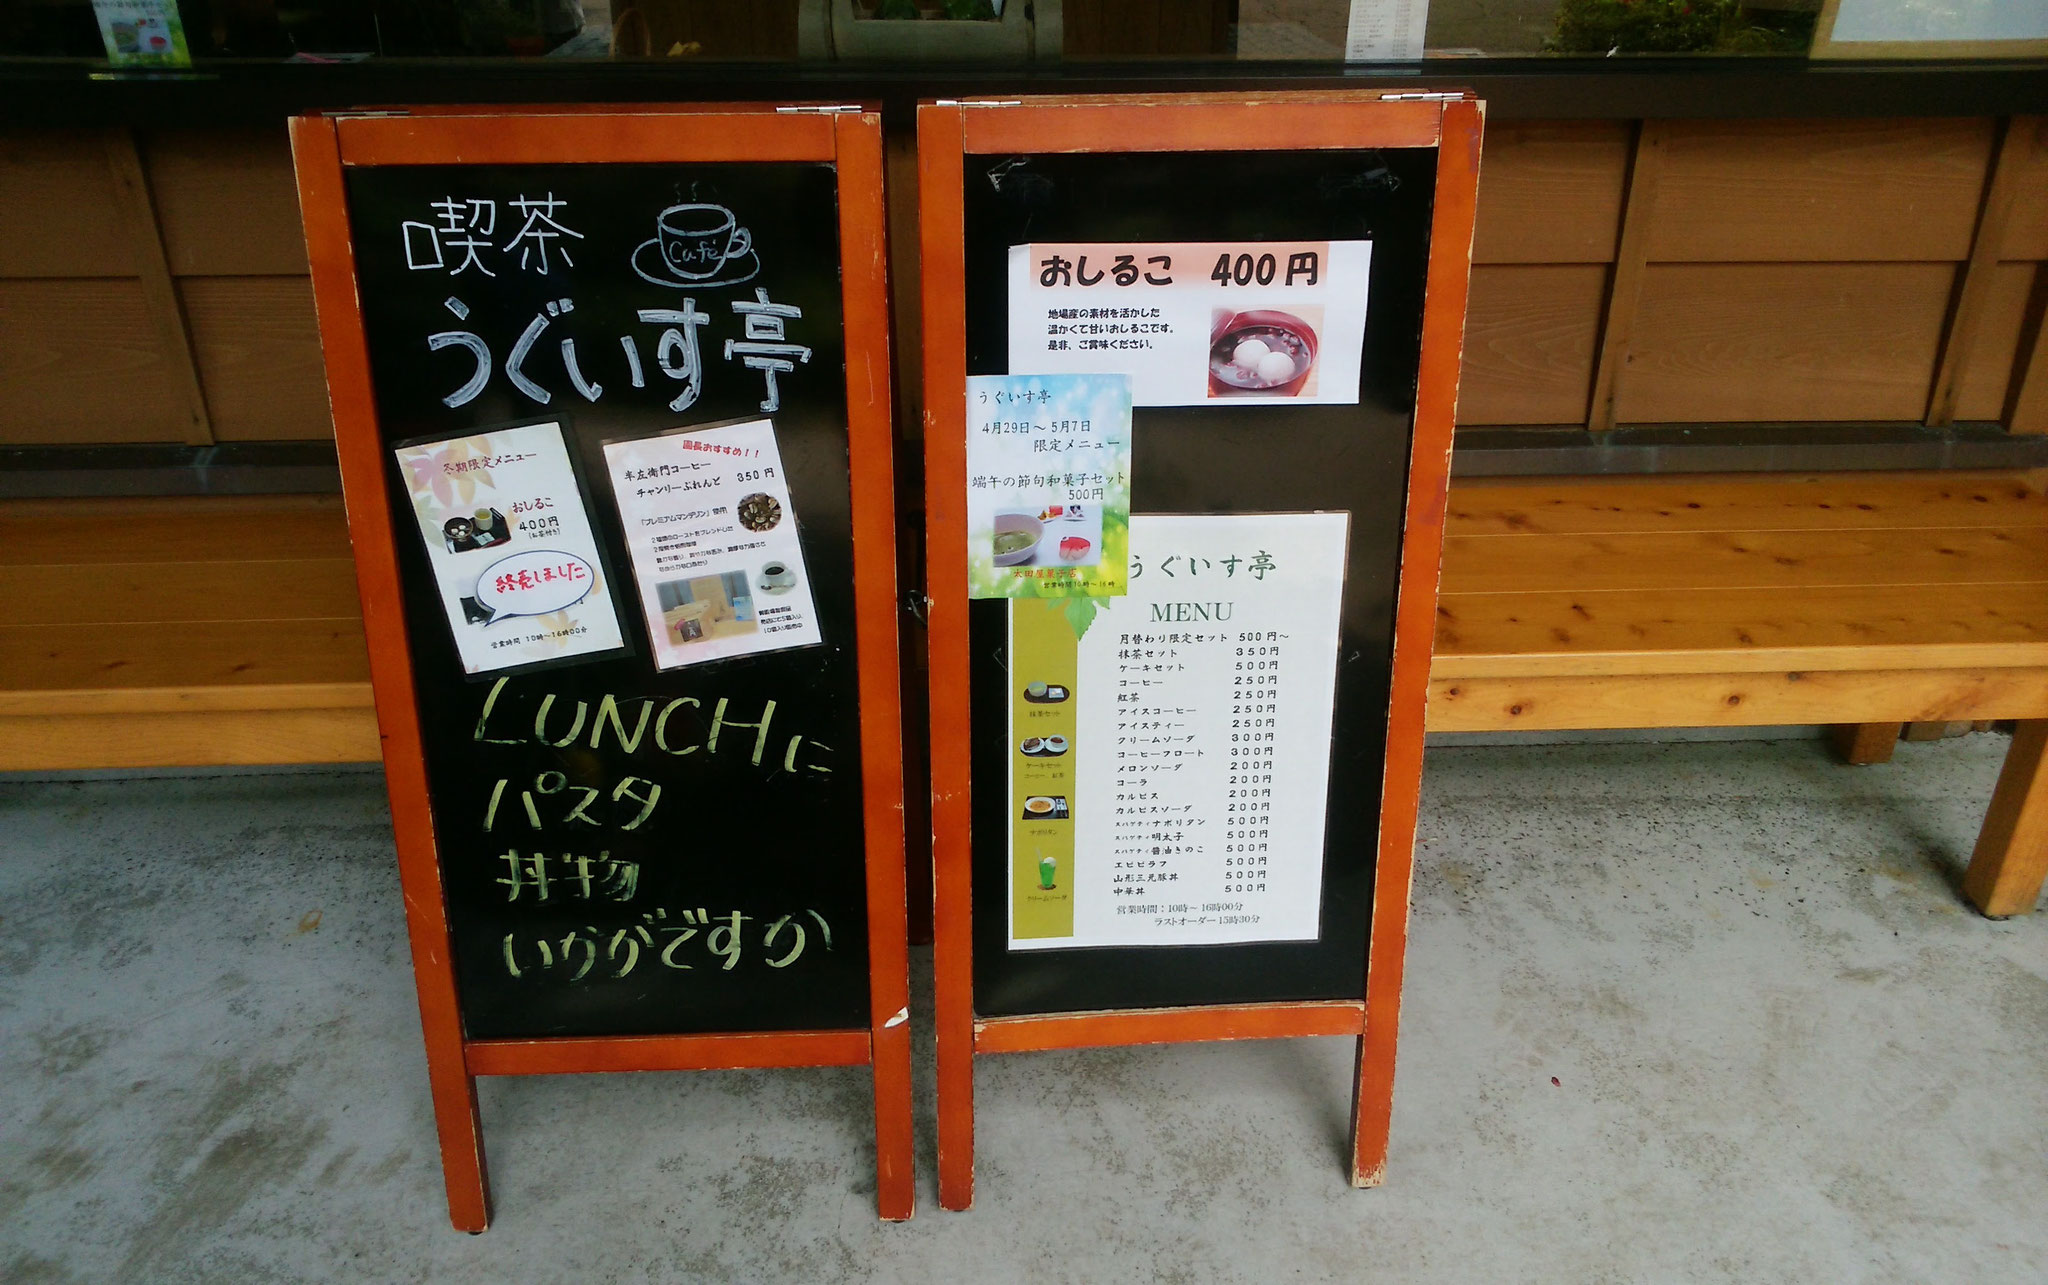 喫茶
Café
うぐいす亭
冬期限定メニュー
おしるこ
400円
(お茶付き)
終売しました
営業時間 10時～16時00分
園長おすすめ！！
半左衛門コーヒー
チャンリーぶれんど 350円
「プレミアムマンデリン」使用
LUNCHに
パスタ
丼物
いかがですか
おしるこ 400円
地場産の素材を活かした
温かくて甘いおしるこです。
是非、ご賞味ください。
うぐいす亭
4月29日～5月7日
限定メニュー
端午の節句和菓子セット
500円
太田屋菓子店
営業時間10時～16時
うぐいす亭
MENU
月替わり限定セット 500円～
抹茶セット 350円
ケーキセット 500円
コーヒー 250円
紅茶 250円
アイスコーヒー 250円
アイスティー 250円
クリームソーダ 300円
コーヒーフロート 300円
メロンソーダ 200円
コーラ 200円
カルピス 200円
カルピスソーダ 200円
スパゲティナポリタン 500円
スパゲティ明太子 500円
スパゲティ醤油きのこ 500円
エビピラフ 500円
山形三元豚丼 500円
中華丼 500円
営業時間：10時～16時00分
ラストオーダー15時30分
抹茶セット
ケーキセット
コーヒー、紅茶
ナポリタン
クリームソーダ